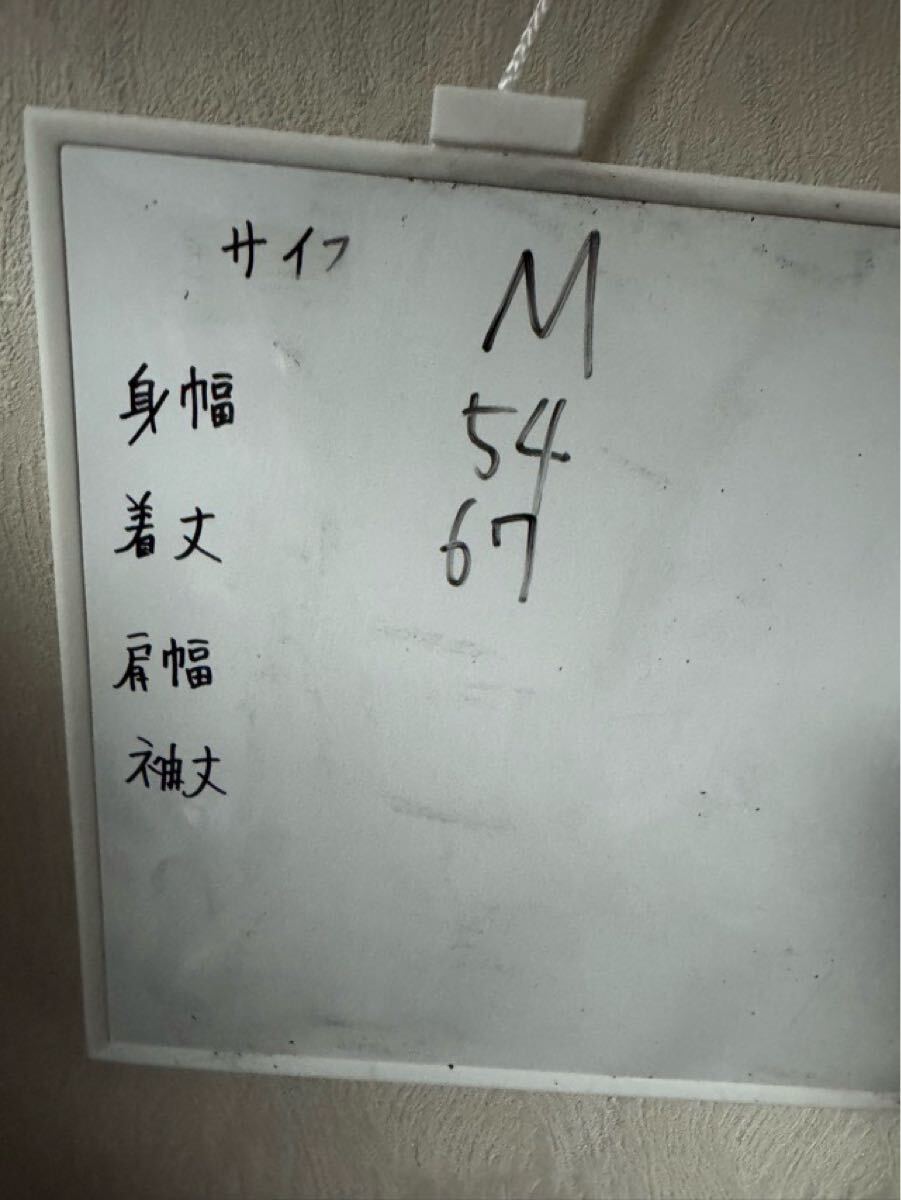 サイフ M
身幅 54
着丈 67
肩幅
袖丈